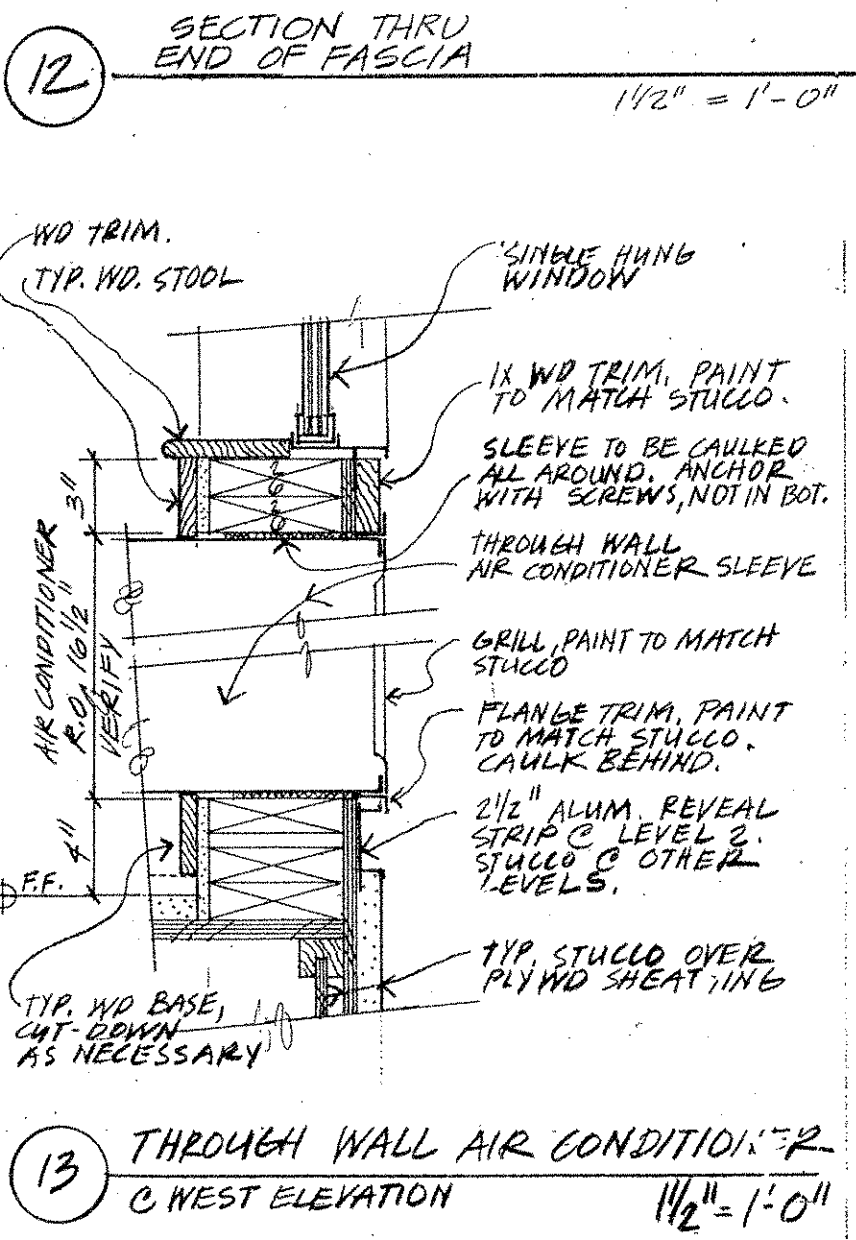 12
SECTION THRU
END OF FASCIA
1 1/2" = 1'-0"
WD TRIM.
TYP. WD. STOOL
SINGLE HUNG
WINDOW
1X WD TRIM. PAINT
TO MATCH STUCCO.
SLEEVE TO BE CAULKED
ALL AROUND. ANCHOR
WITH SCREWS, NOT IN BOT.
THROUGH WALL
AIR CONDITIONER SLEEVE
GRILL, PAINT TO MATCH
STUCCO
FLANGE TRIM. PAINT
TO MATCH STUCCO.
CAULK BEHIND.
2 1/2" ALUM. REVEAL
STRIP @ LEVEL 2.
STUCCO @ OTHER
LEVELS.
TYP. STUCCO OVER
PLYWD SHEATHING
3"
AIR CONDITIONER
R.O. 16 1/2"
VERIFY
4"
F.F.
TYP. WD BASE,
CUT-DOWN
AS NECESSARY
13
THROUGH WALL AIR CONDITIONER
@ WEST ELEVATION
1 1/2" = 1'-0"